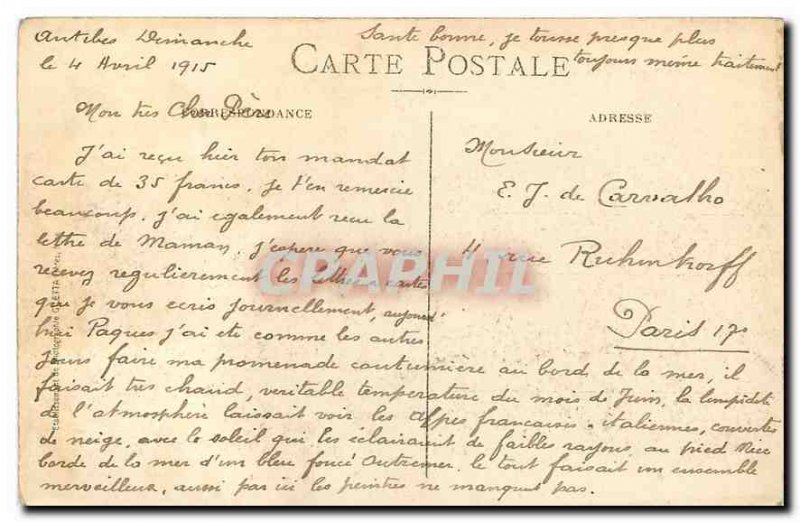 Antibes Dimanche
le 4 Avril 1915
Sante bonne, je tousse presque plus
toujours meme traitement
CARTE POSTALE
Mon tres Cher Père
CORRESPONDANCE
J'ai reçu hier ton mandat
carte de 35 francs. je t'en remercie
beaucoup. j'ai egalement recu la
lettre de Maman, j'espere que vous
recevez regulierement les lettres cartes
que je vous ecris journellement, aujourd'
hui Paques j'ai ete comme les autres
jours faire ma promenade coutumière au bord de la mer, il
faisait tres chaud, veritable temperature du mois de Juin, la limpidité
de l'atmosphère laissait voir les Alpes francaises italiennes, couvertes
de neige, avec le soleil qui les éclairaient de faibles rayons, au pied Nice
borde de la mer d'un bleu foncé Outremer. le tout faisait un ensemble
merveilleux, aussi par ici les peintres ne manquent pas.
ADRESSE
Monsieur
E. J. de Carvalho
4 rue Ruhmkorff
Paris 17e
CPAPHIL